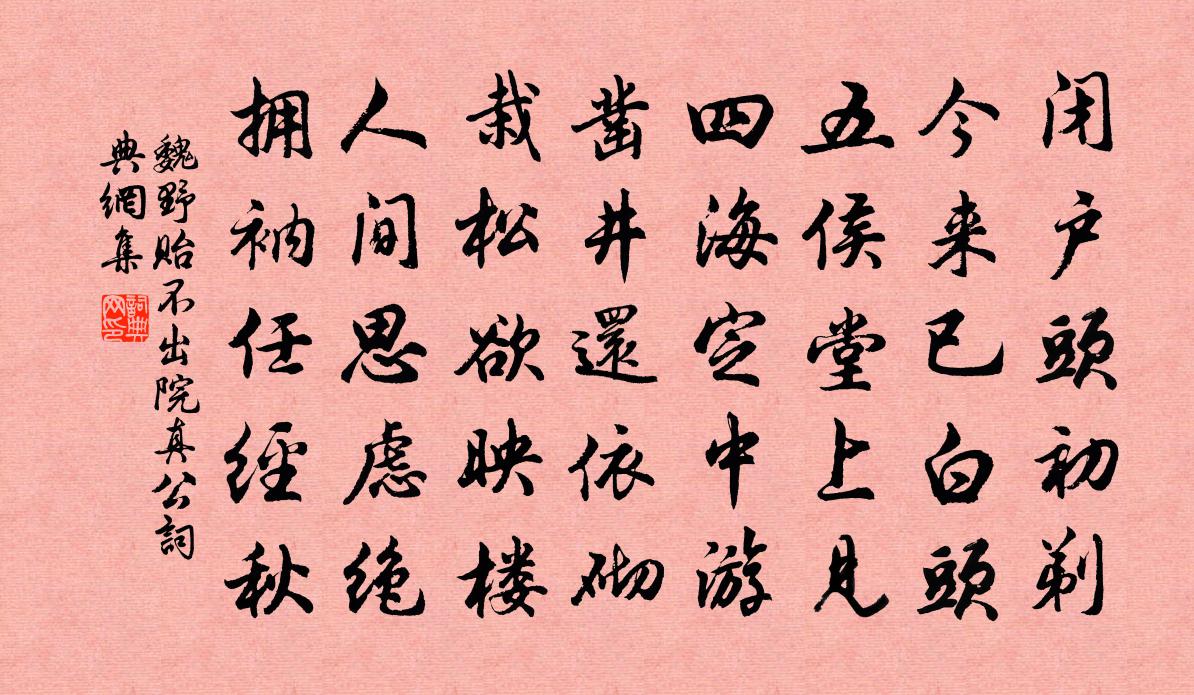 闭户頭初剃
今来已白頭
五侯堂上见
四海定中游
凿井還依砌
栽松欲映楼
人间思虑绝
拥衲任經秋
魏野贻不出院真公詞
典網集
詞典
网印